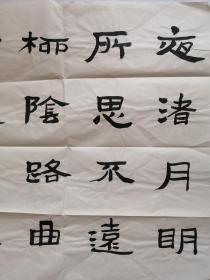 夜渚月明
所思不遠
柳陰路曲